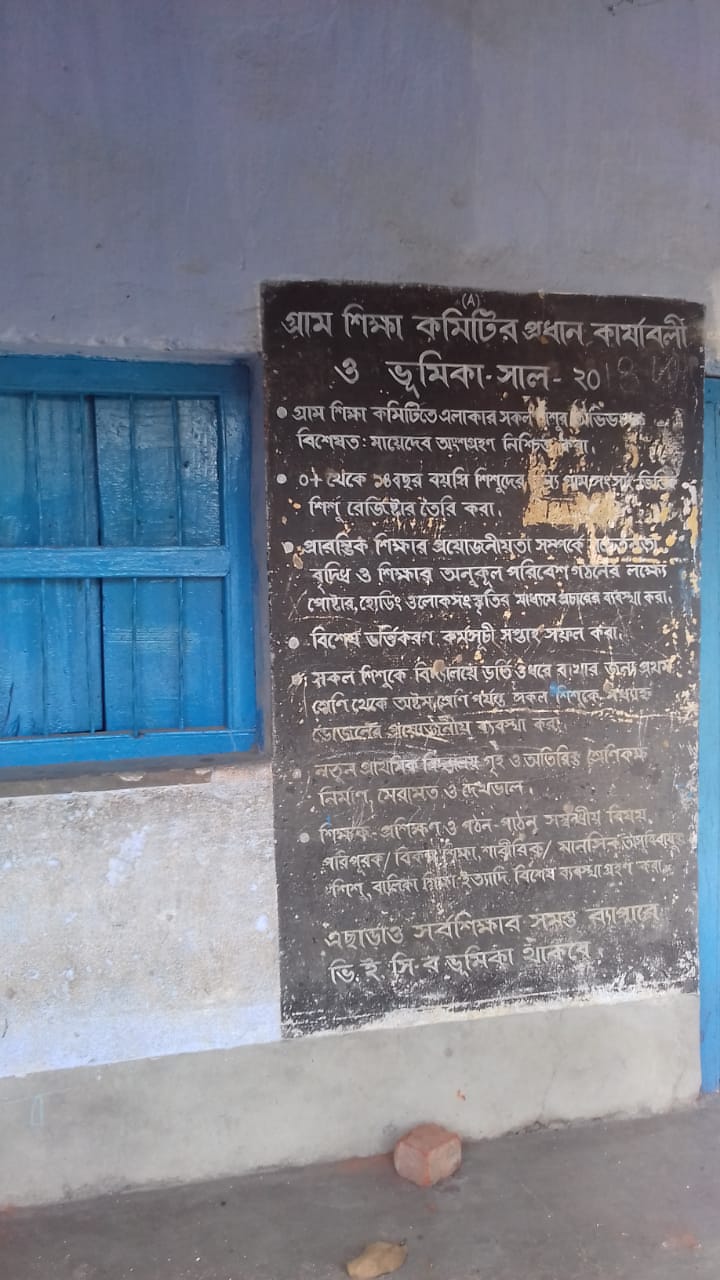 (A)
গ্রাম শিক্ষা কমিটির প্রধান কার্যাবলী
ও ভূমিকা - সাল - ২০18
• গ্রাম শিক্ষা কমিটিতে এলাকার সকল
বিশেষত: মায়েদেব অংশগ্রহণ নিশ্চিত করা.
• ০+ থেকে ১৪ বছর বয়সি শিশুদের
শিশু রেজিষ্টার তৈরি করা.
• প্রারম্ভিক শিক্ষার প্রয়োজনীয়তা সম্পর্কে
বৃদ্ধি ও শিক্ষার অনুকূল পরিবেশ গঠনের লক্ষ্যে
পোষ্টার, হোডিং ও লোকসংস্কৃতির মাধ্যমে প্রচারের ব্যবস্থা করা.
• বিশেষ ভর্তিকরণ কর্মসূচী সপ্তাহ সফল করা.
• সকল শিশুকে ভর্তি ও ধরে রাখার জন্য প্রথম
শ্রেণি থেকে অষ্টম শ্রেণি পর্যন্ত সকল শিশুকে
ভোজনের প্রয়োজনীয় ব্যবস্থা করা
• নতুন প্রাথমিক বিদ্যালয় গৃহ ও অতিরিক্ত শ্রেণিকক্ষ
নির্মাণ, মেরামত ও দেখভাল.
• শিক্ষক-প্রশিক্ষণ ও পঠন-পাঠন সম্বন্ধীয় বিষয়,
পরিপূরক/ বিকল্প শিক্ষা, শারীরিক/ মানসিক
শিশু, বালিকা শিক্ষা ইত্যাদি বিশেষ ব্যবস্থা গ্রহণ করা.
এছাড়াও সর্বশিক্ষার সমস্ত ব্যাপারে
ভি. ই. সি-র ভূমিকা থাকবে.